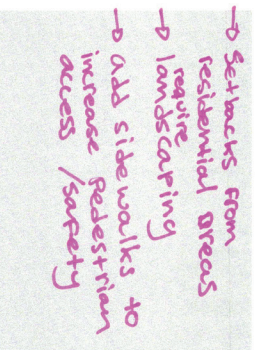 → Setbacks from
residential areas
→ require
landscaping
→ add sidewalks to
increase pedestrian
access /safety